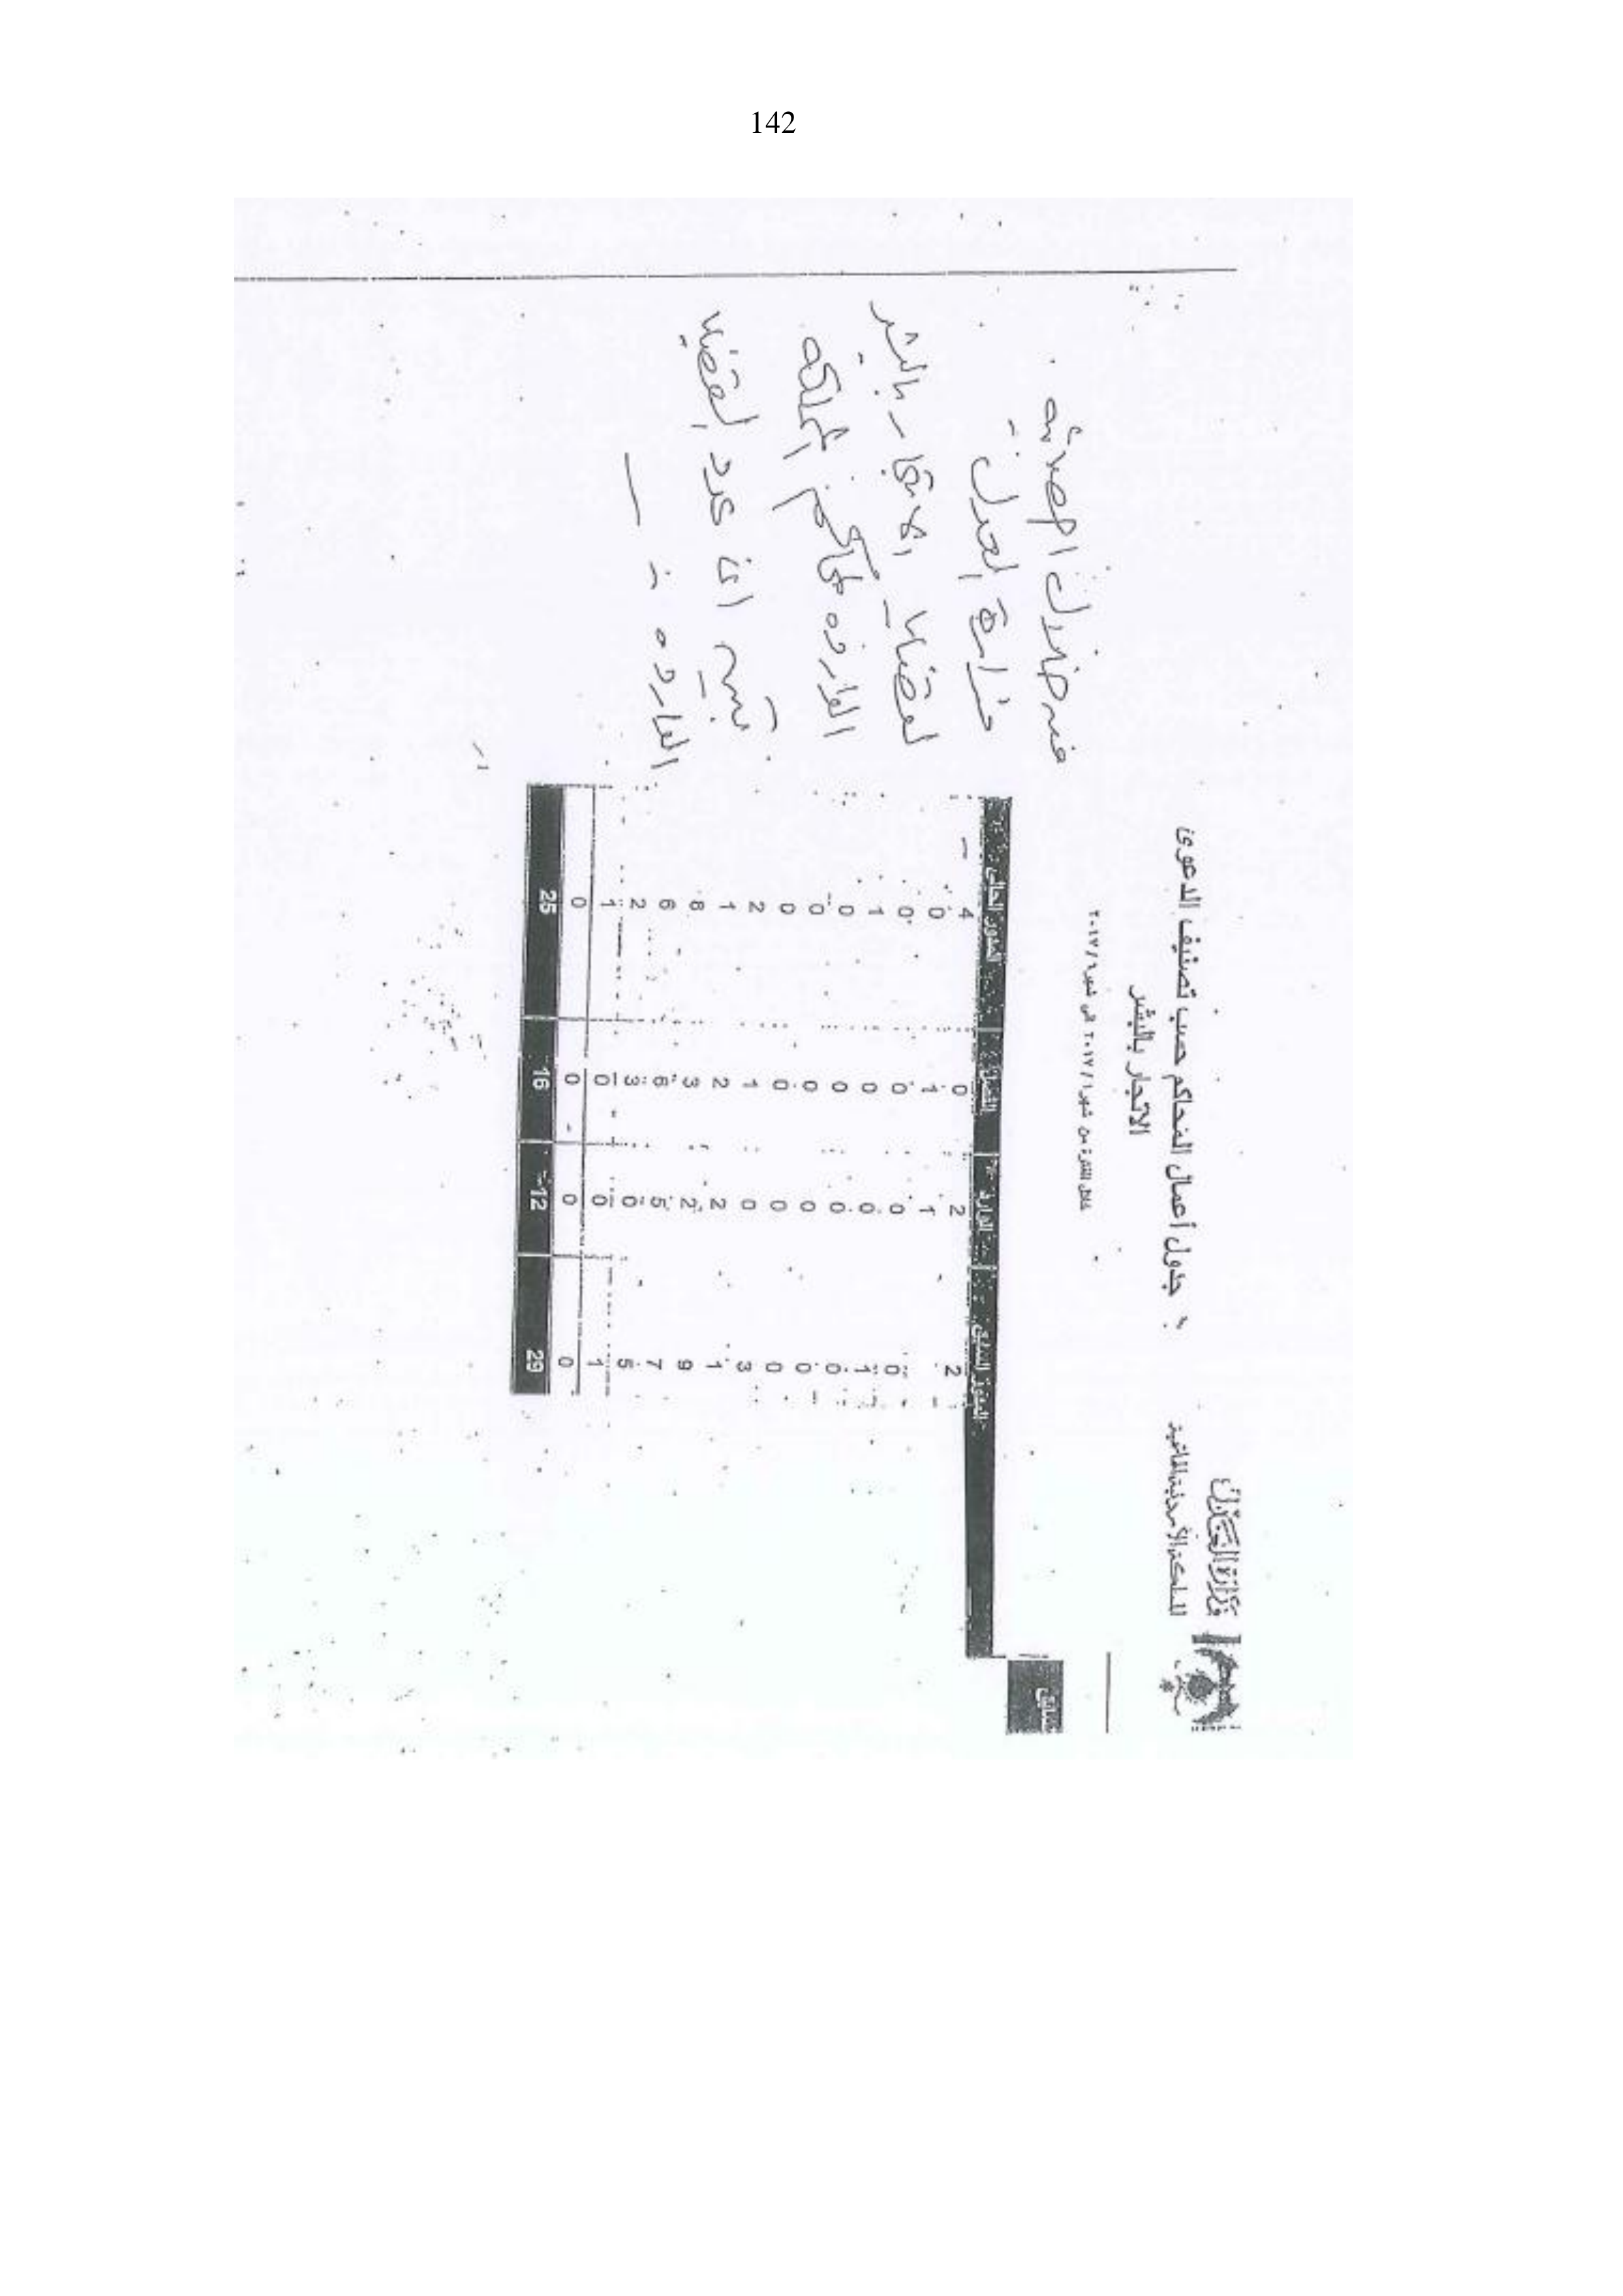 142
وزارة العدل
المملكة الأردنية الهاشمية
جدول أعمال المحاكم حسب تصنيف الدعوى
الاتجار بالبشر
خلال الفترة من شهر ٢٠١٧/١ الى شهر ٢٠١٧/٦
المدور السابق الوارد الفصل المدور الحالي
2 2 0 4
1 1 0
0 0 0 0
1 0 0 1
0 0 0 0
0 0 0 0
0 0 0 0
3 0 1 2
1 2 2 1
9 2 3 8
7 5 6 6
5 0 3 2
1 0 0 1
0 0 0 0
29 12 16 25
من خلال احصائية
وزارة العدل
لقضايا الاتجار بالبشر
الواردة لمحاكم المملكة
تبين ان عدد القضايا
الواردة